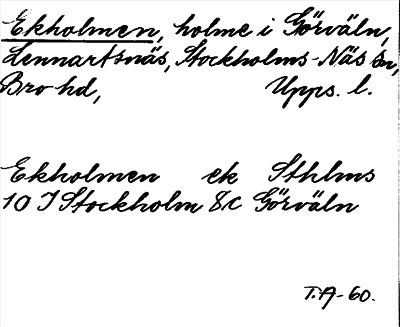 Ekholmen, holme i Görväln,
Lennartsnäs, Stockholms-Näs sn,
Bro hd, Upps. l.
Ekholmen ek Sthlms
10 I Stockholm 8c Görväln
T.A-60.